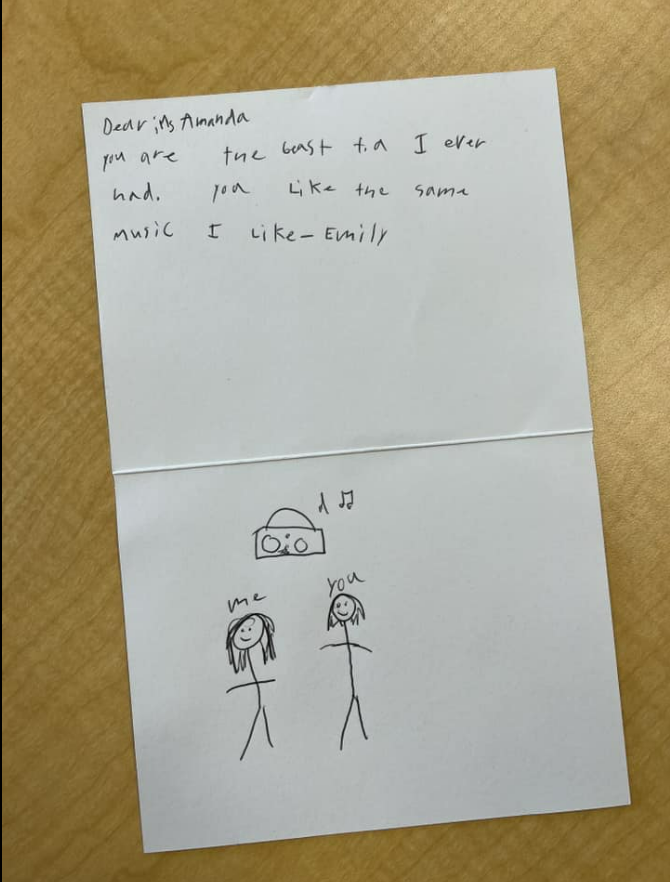 Dear Ms Amanda
you are the beast t.a I ever
had. you Like the same
music I Like - Emily
me
you